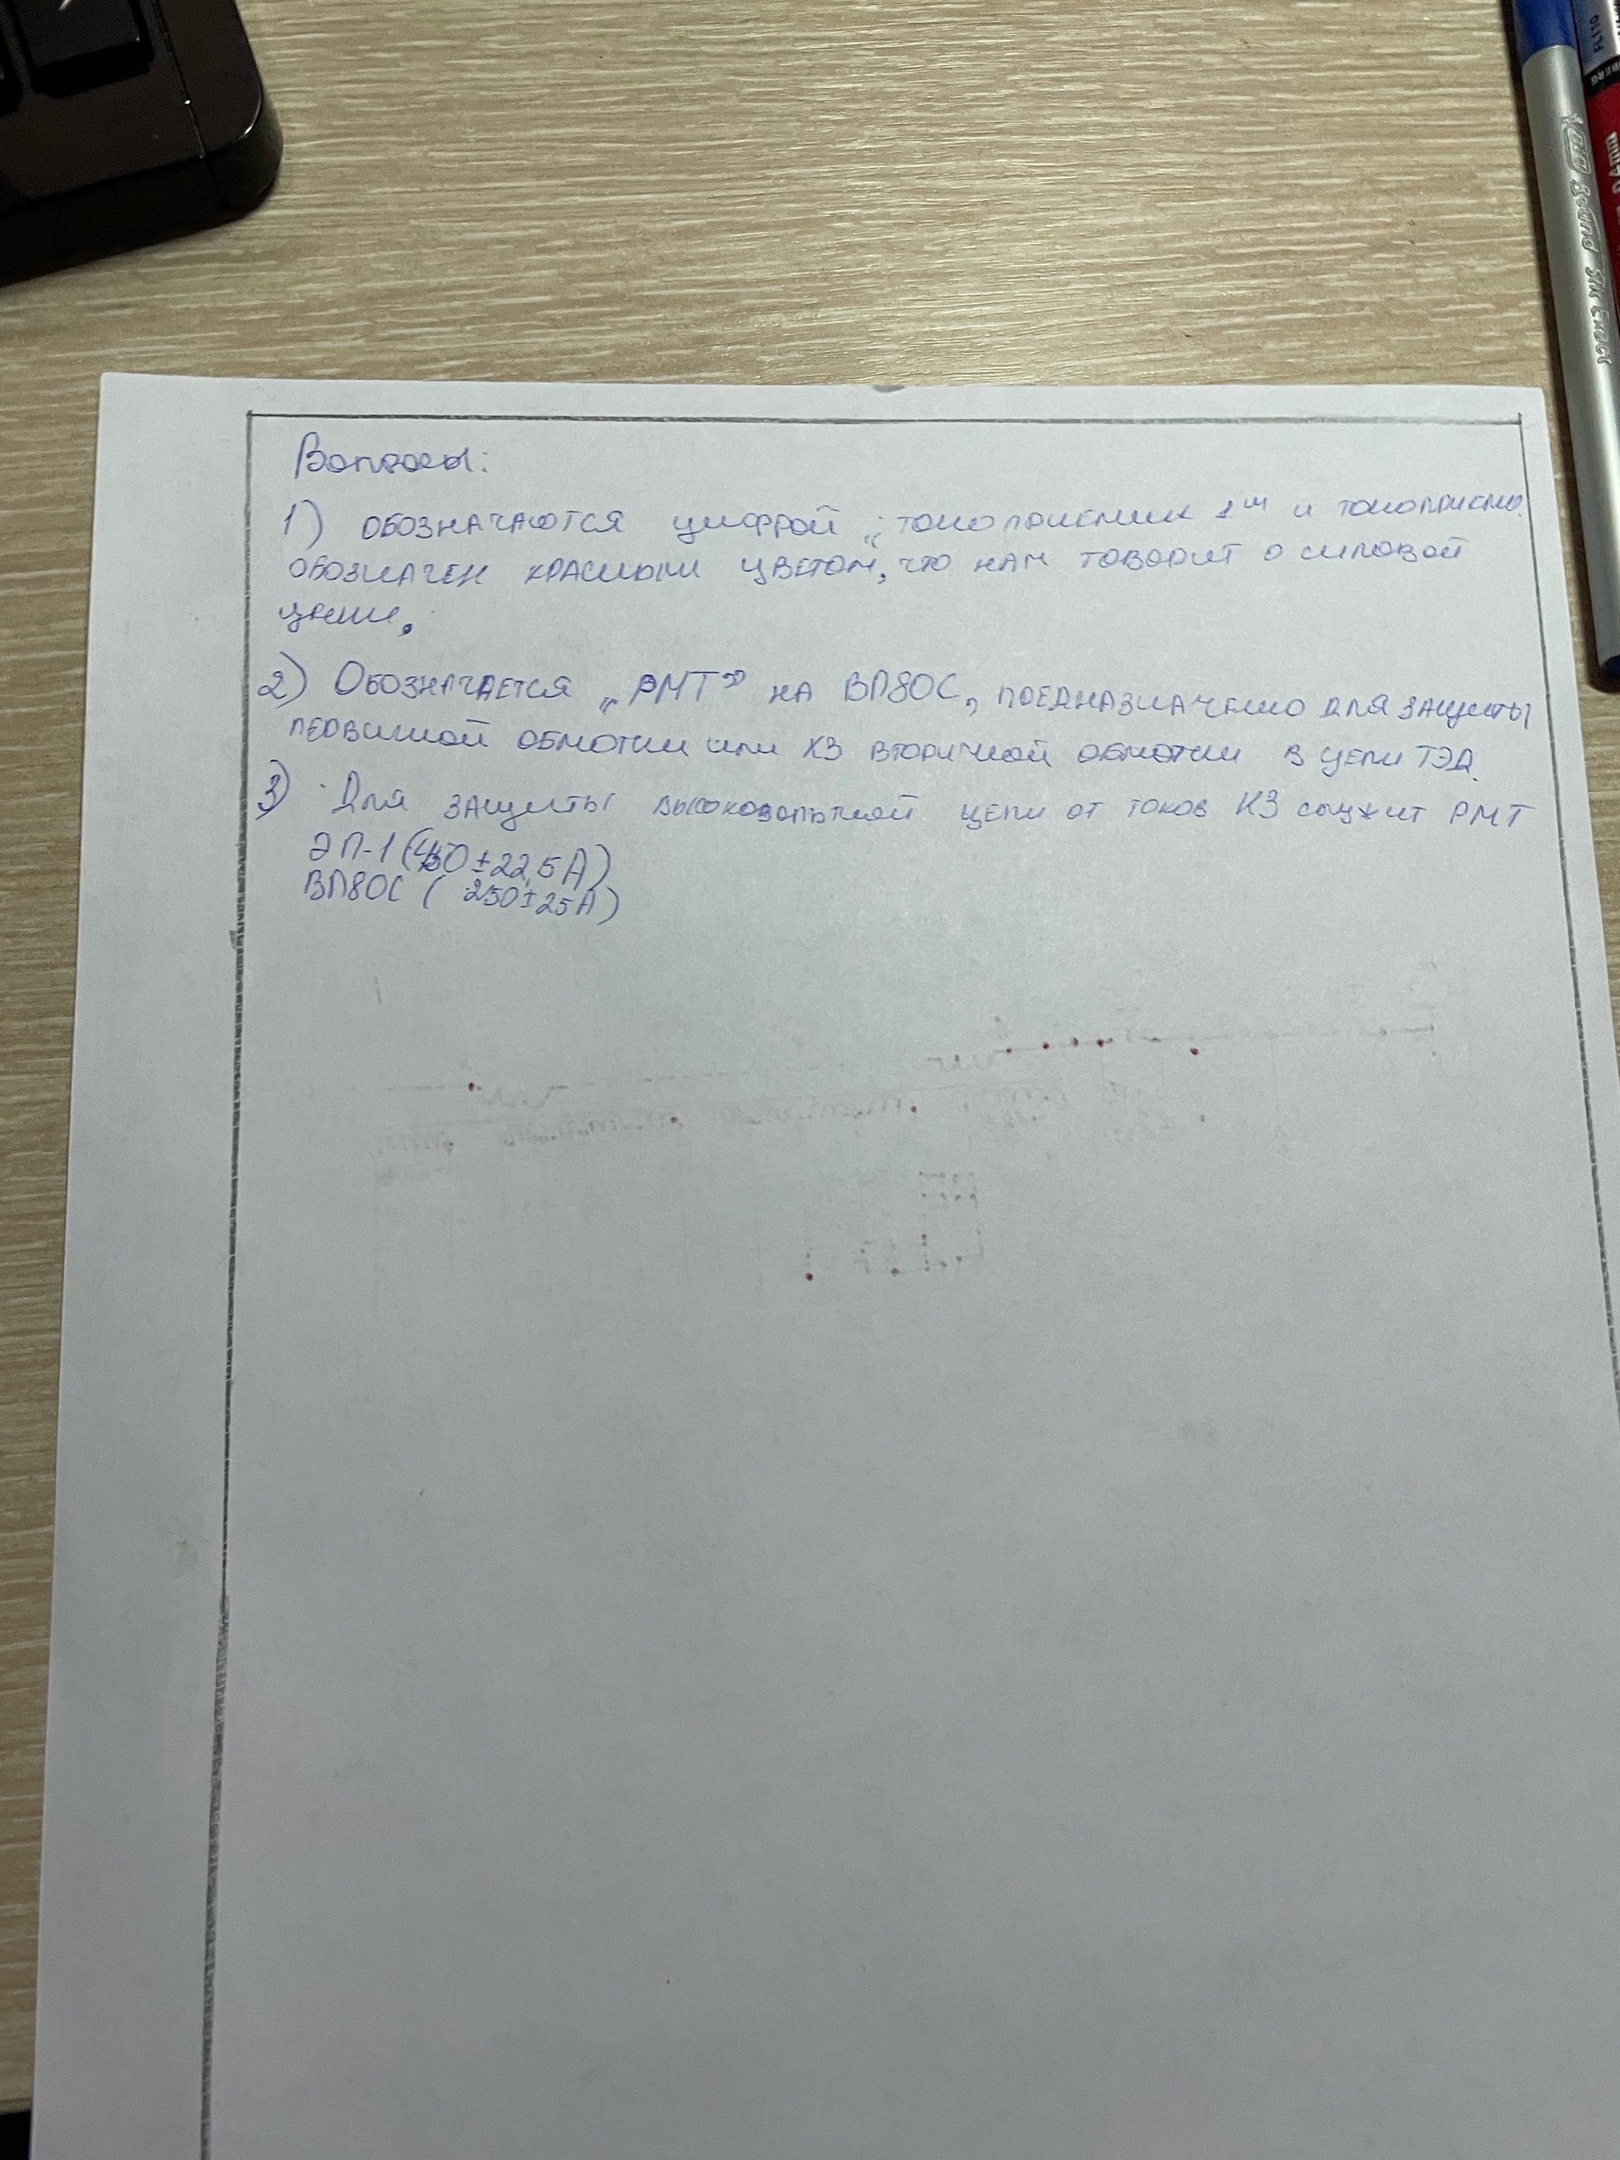 Вопросы:
1) обозначаются цифрой „токоприемик 1ый и токоприемо.
обозначен красным цветом, что нам говорит о силовой
цепи.
2) Обозначается „РМТ” на ВЛ80С, предназначено для защиты
первичной обмотки или КЗ вторичной обмотки в цепи ТЭД.
3) Для защиты высоковольтной цепи от токов КЗ служит РМТ
ЭП-1 (450±22,5А)
ВЛ80С ( 250±25А)